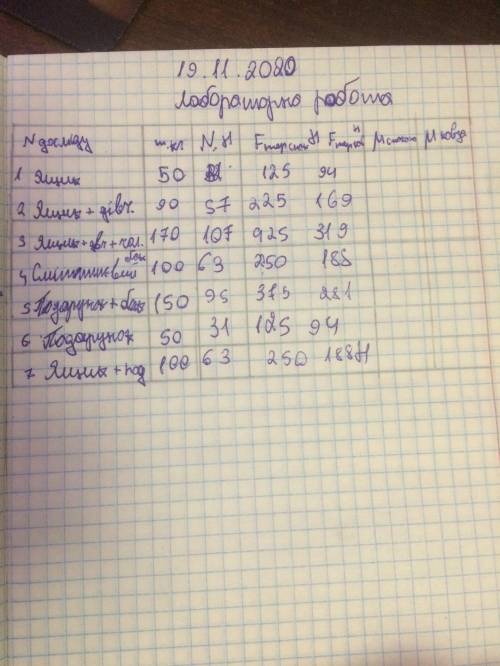 19.11.2020
Лабораторна робота
N досліду m, кг N, Н Fтертя спок Н Fтертя ков Н μ спокою μ ковз
1 Ящик 50 31 125 94
2 Ящик + дівч. 90 57 225 169
3 Ящик + дівч + чол. 170 107 925 319
4 Смітниковий бак 100 63 250 188
5 Подарунок + бак 150 95 375 281
6 Подарунок 50 31 125 94
7 Ящик + под 100 63 250 188Н